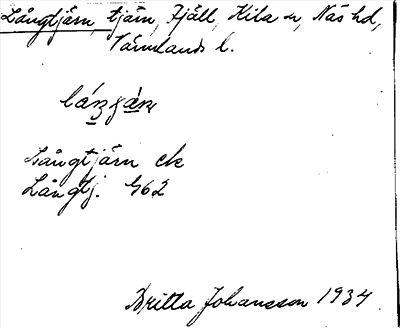 Långtjärn, tjärn, Fjäll, Kila sn, Näs hd,
Värmlands l.
Långtjärn ck
Långtj. G62
Britta Johansson 1934